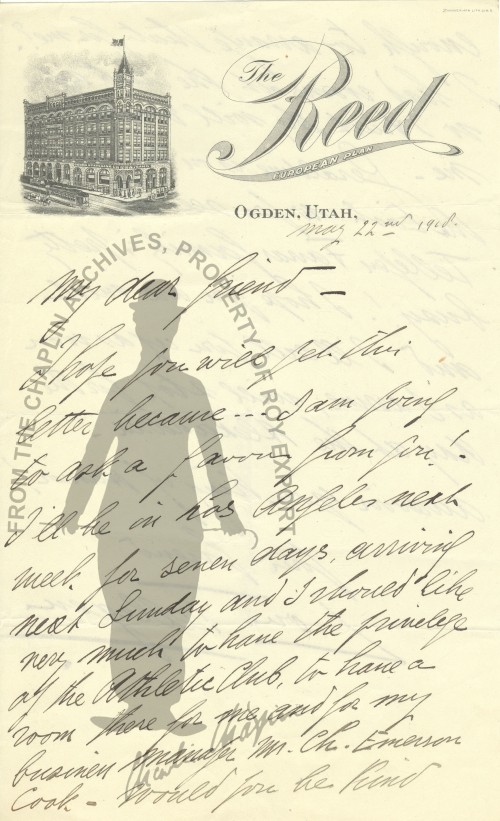 The Reed
EUROPEAN PLAN
OGDEN, UTAH,
may 22nd 1918.
FROM THE CHAPLIN ARCHIVES, PROPERTY OF ROY EXPORT
My dear friend —
I hope you will get this
letter because --- I am going
to ask a favour from you!-
I'll be in Los Angeles next
week for seven days, arriving
next Sunday and I should like
very much to have the privelege
of the Athletic Club, to have a
room there for me and for my
business manager Mr. Ch. Emerson
Cook - Would you be kind
Charlie Chaplin